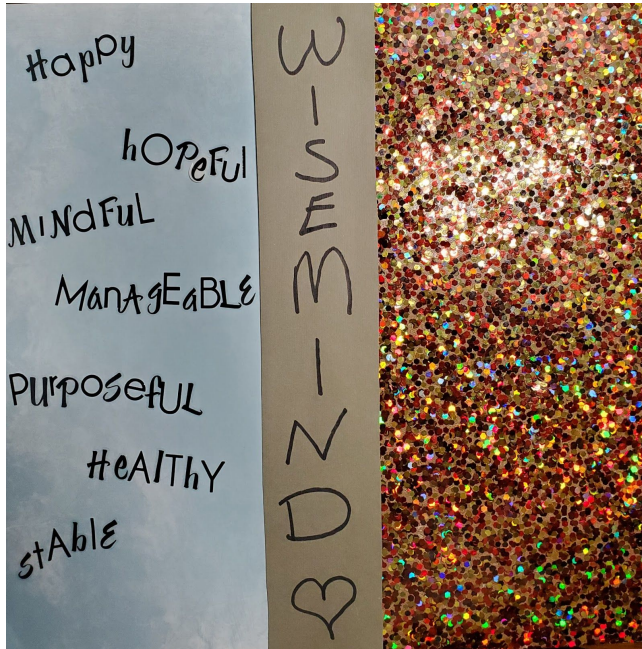 Happy
hOPeFul
MINdFuL
ManAgEaBLE
PurposefUL
HeAlThY
stAblE
WISEMIND♡